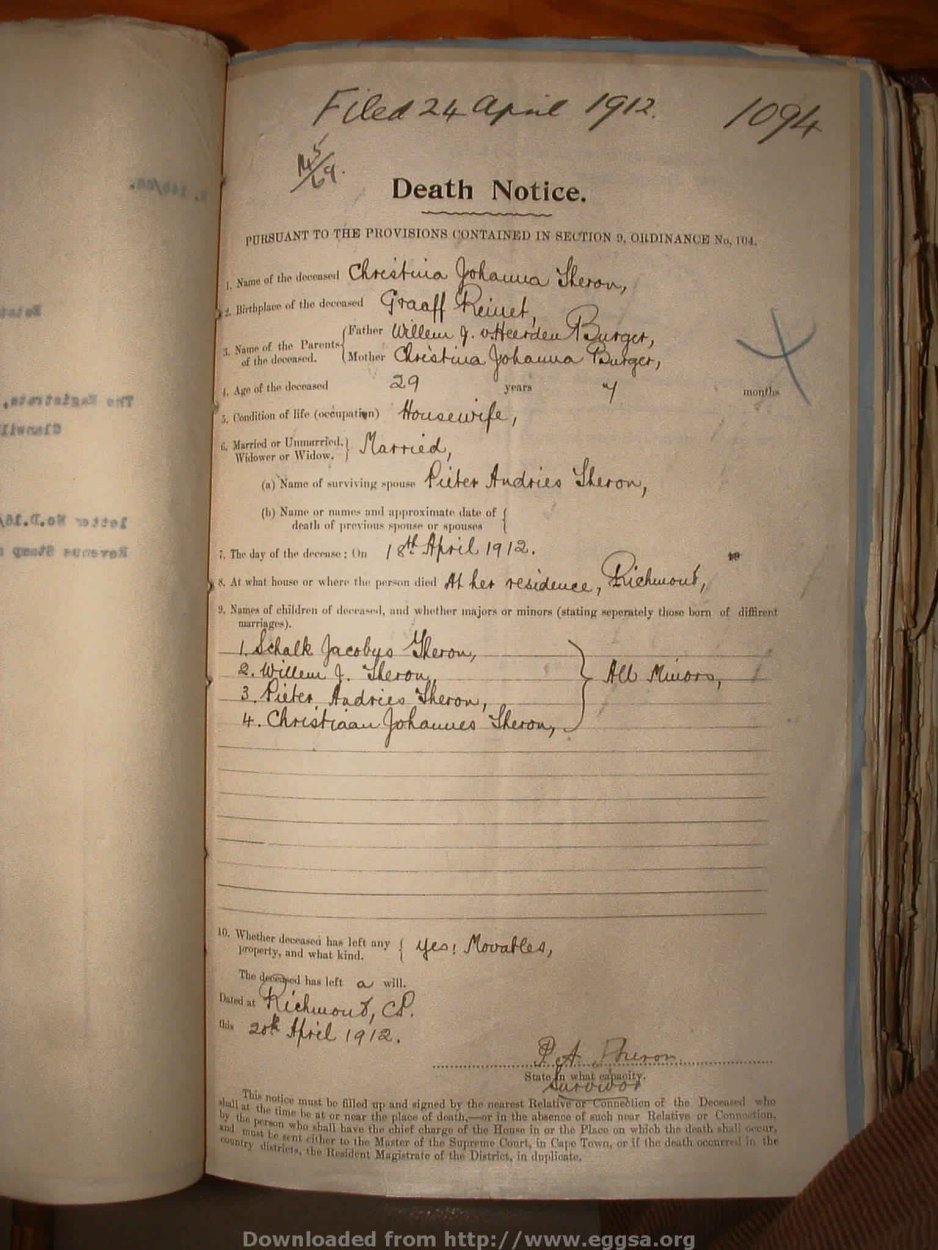 Filed 24 April 1912.
1094
Death Notice.
PURSUANT TO THE PROVISIONS CONTAINED IN SECTION 9, ORDINANCE No, 104.
1. Name of the deceased Christina Johanna Theron,
2. Birthplace of the deceased Graaff Reinet,
3. Name of the Parents of the deceased. { Father Willem J. v. Heerden Burger,
Mother Christina Johanna Burger,
4. Age of the deceased 29 years 7 months
5. Condition of life (occupation) Housewife,
6. Married or Unmarried. } Married,
Widower or Widow.
(a) Name of surviving spouse Pieter Andries Theron,
(b) Name or names and approximate date of {
death of previous spouse or spouses
7. The day of the decease: On 18th April 1912.
8. At what house or where the person died At her residence, Richmond,
9. Names of children of deceased, and whether majors or minors (stating seperately those born of diffirent
marriages).
1. Schalk Jacobus Theron,
2. Willem J. Theron, } All Minors,
3. Pieter Andries Theron,
4. Christiaan Johannes Theron,
10. Whether deceased has left any { yes: Movables,
property, and what kind.
The deceased has left a will.
Dated at Richmond, CP.
this 20th April 1912.
P. A. Theron
State in what capacity.
Survivor
This notice must be filled up and signed by the nearest Relative or Connection of the Deceased who
shall at the time be at or near the place of death,—or in the absence of such near Relative or Connection,
by the person who shall have the chief charge of the House in or the Place on which the death shall occur,
and must be sent either to the Master of the Supreme Court, in Cape Town, or if the death occurred in the
country districts, the Resident Magistrate of the District, in duplicate.
Downloaded from http://www.eggsa.org